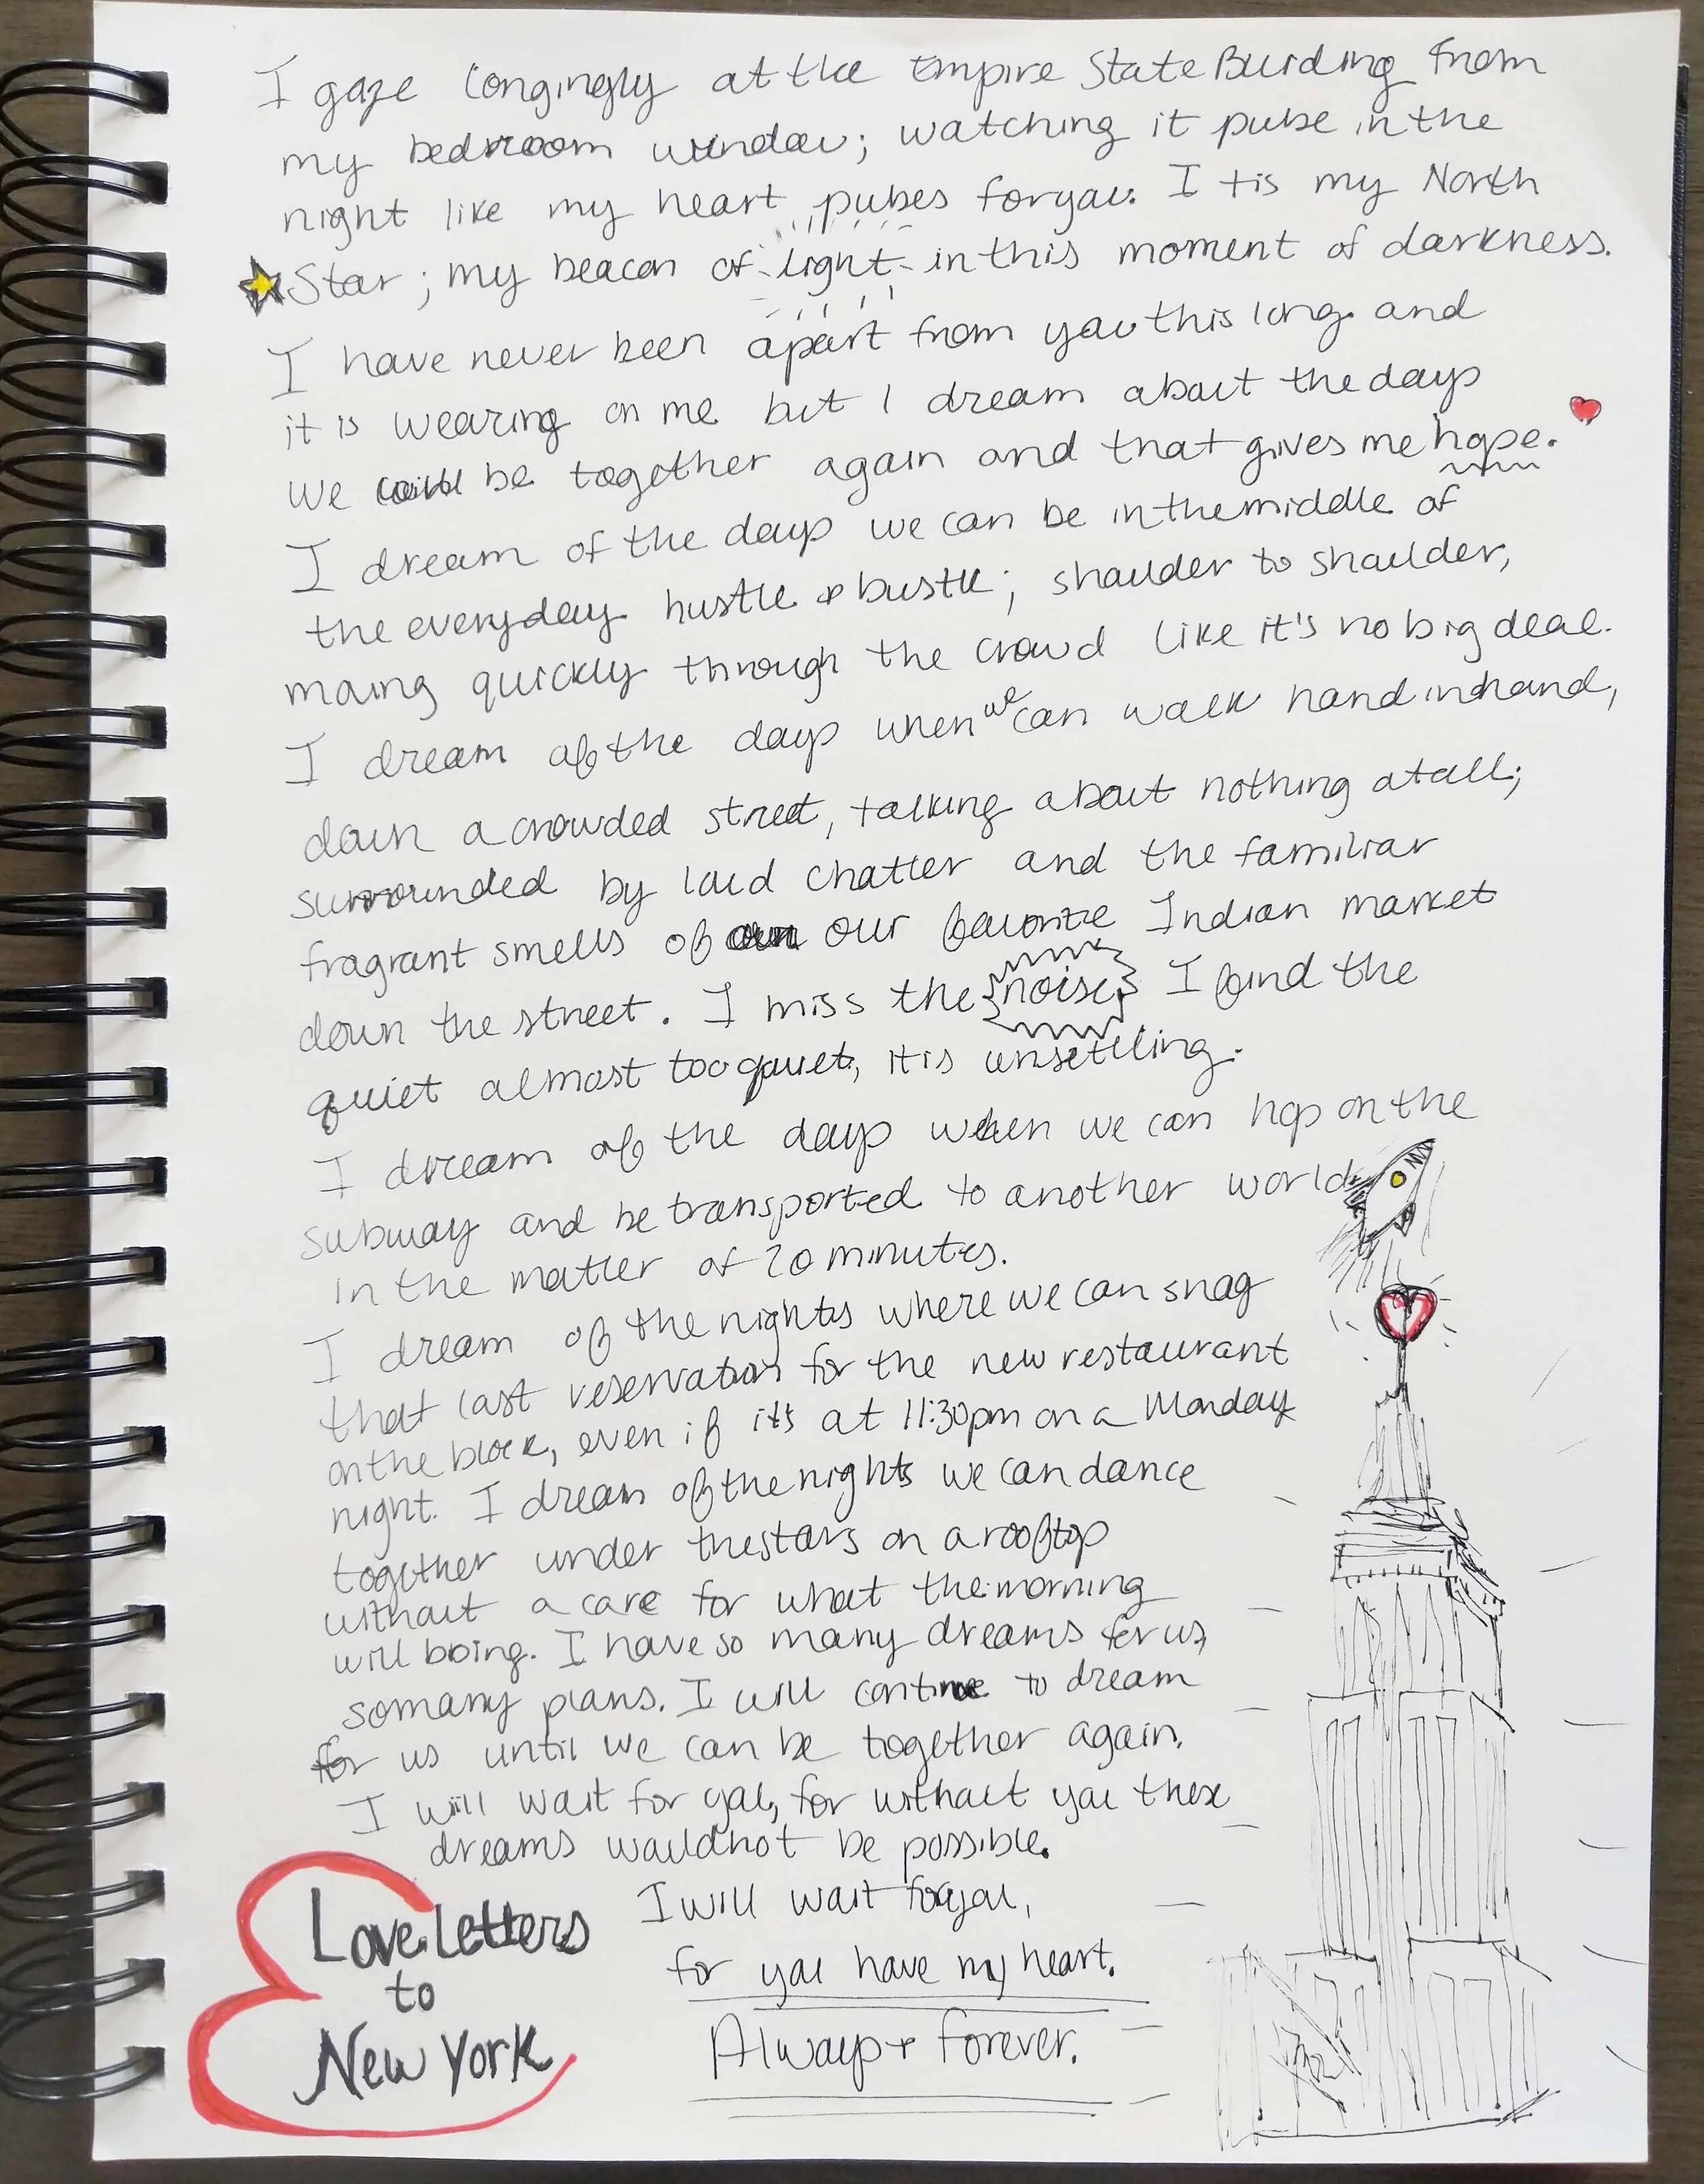 I gaze longingly at the Empire State Building from
my bedroom window; watching it pulse in the
night like my heart pulses for you. It is my North
Star; my beacon of light in this moment of darkness.
I have never been apart from you this long and
it is wearing on me but I dream about the days
we will be together again and that gives me hope.
I dream of the days we can be in the middle of
the everyday hustle & bustle; shoulder to shoulder,
moving quickly through the crowd like it's no big deal.
I dream of the days when we can walk hand in hand,
down a crowded street, talking about nothing at all;
surrounded by loud chatter and the familiar
fragrant smells of our favorite Indian market
down the street. I miss the noise, I find the
quiet almost too quiet, it is unsettling.
I dream of the days when we can hop on the
subway and be transported to another world
in the matter of 20 minutes.
I dream of the nights where we can snag
that last reservation for the new restaurant
on the block, even if it's at 11:30pm on a Monday
night. I dream of the nights we can dance
together under the stars on a rooftop
without a care for what the morning
will bring. I have so many dreams for us,
so many plans. I will continue to dream
for us until we can be together again.
I will wait for you, for without you these
dreams would not be possible.
I will wait for you,
for you have my heart.
Always & Forever.
Love Letters
to
New York